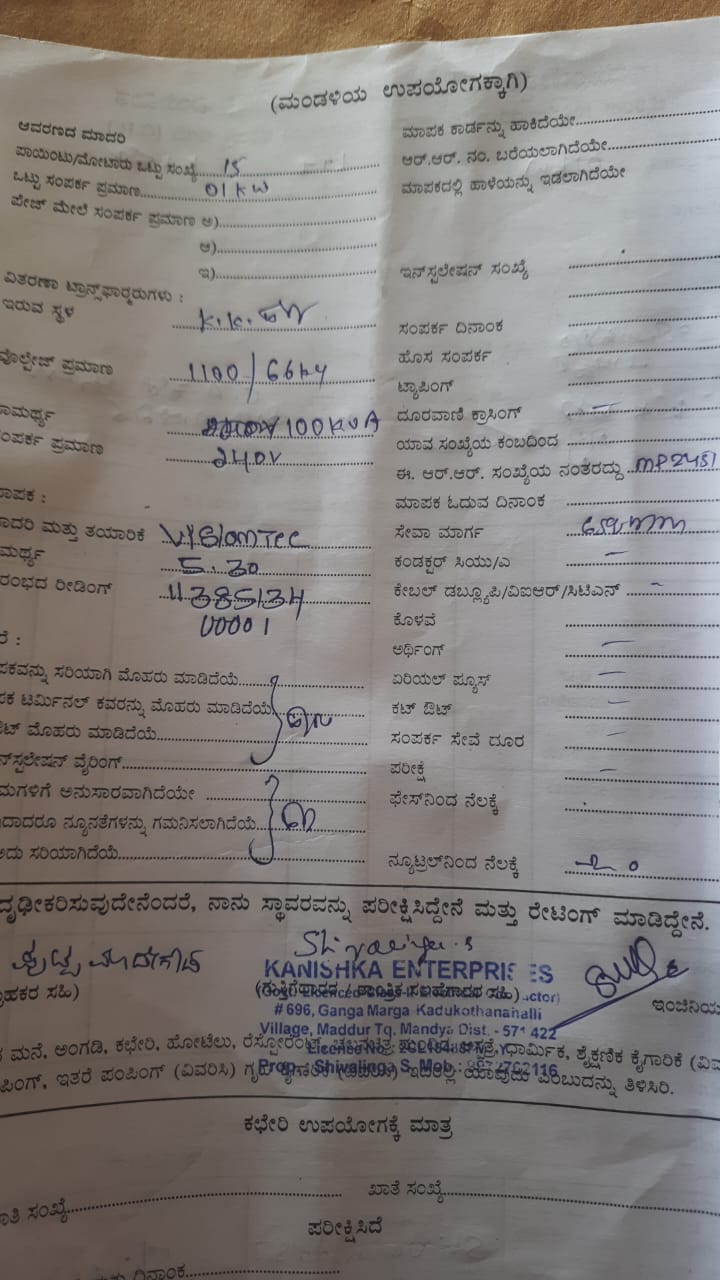 (ಮಂಡಳಿಯ ಉಪಯೋಗಕ್ಕಾಗಿ)
ಆವರಣದ ಮಾದರಿ
ಪಾಯಿಂಟು/ಮೋಟಾರು ಒಟ್ಟು ಸಂಖ್ಯೆ 15
ಒಟ್ಟು ಸಂಪರ್ಕ ಪ್ರಮಾಣ 01 KW
ಪೇಜ್ ಮೇಲೆ ಸಂಪರ್ಕ ಪ್ರಮಾಣ ಅ)
ಆ)
ಇ)
ವಿತರಣಾ ಟ್ರಾನ್ಸ್‌ಫಾರ್‍ಮರುಗಳು :
ಇರುವ ಸ್ಥಳ K.K.
ವೊಲ್ಟೇಜ್ ಪ್ರಮಾಣ 1100/
ಾಮರ್ಥ್ಯ 100KVA
ಂಪರ್ಕ ಪ್ರಮಾಣ 240V
ಾಪಕ :
ಾದರಿ ಮತ್ತು ತಯಾರಿಕೆ VISIONTEC
ಮರ್ಥ್ಯ 5.30
ರಂಭದ ರೀಡಿಂಗ್ 11385134
00001
ರೆ :
ಪಕವನ್ನು ಸರಿಯಾಗಿ ಮೊಹರು ಮಾಡಿದೆಯೆ
ಪಕ ಟರ್ಮಿನಲ್ ಕವರನ್ನು ಮೊಹರು ಮಾಡಿದೆಯೆ
ಟ್ ಮೊಹರು ಮಾಡಿದೆಯೆ
ನ್‌ಸ್ಟಲೇಷನ್ ವೈರಿಂಗ್
ಮಗಳಿಗೆ ಅನುಸಾರವಾಗಿದೆಯೇ
ದಾದರೂ ನ್ಯೂನತೆಗಳನ್ನು ಗಮನಿಸಲಾಗಿದೆಯೆ
ಅದು ಸರಿಯಾಗಿದೆಯೆ
ಮಾಪಕ ಕಾರ್ಡನ್ನು ಹಾಕಿದೆಯೇ
ಆರ್.ಆರ್. ನಂ. ಬರೆಯಲಾಗಿದೆಯೇ
ಮಾಪಕದಲ್ಲಿ ಹಾಳೆಯನ್ನು ಇಡಲಾಗಿದೆಯೇ
ಇನ್‌ಸ್ಟಲೇಷನ್ ಸಂಖ್ಯೆ
ಸಂಪರ್ಕ ದಿನಾಂಕ
ಹೊಸ ಸಂಪರ್ಕ
ಟ್ಯಾಪಿಂಗ್
ದೂರವಾಣಿ ಕ್ರಾಸಿಂಗ್ –
ಯಾವ ಸಂಖ್ಯೆಯ ಕಂಬದಿಂದ
ಈ. ಆರ್.ಆರ್. ಸಂಖ್ಯೆಯ ನಂತರದ್ದು MP2451
ಮಾಪಕ ಓದುವ ದಿನಾಂಕ
ಸೇವಾ ಮಾರ್ಗ
ಕಂಡಕ್ಟರ್ ಸಿಯು/ಎ –
ಕೇಬಲ್ ಡಬ್ಲ್ಯೂಪಿ/ವಿಐಆರ್/ಸಿಟಿಎನ್ –
ಕೊಳವೆ
ಅರ್ಥಿಂಗ್ –
ಏರಿಯಲ್ ಪ್ಯೂಸ್ –
ಕಟ್ ಔಟ್ –
ಸಂಪರ್ಕ ಸೇವೆ ದೂರ –
ಪರೀಕ್ಷೆ –
ಫೇಸ್‌ನಿಂದ ನೆಲಕ್ಕೆ
ನ್ಯೂಟ್ರಲ್‌ನಿಂದ ನೆಲಕ್ಕೆ
ದೃಢೀಕರಿಸುವುದೇನೆಂದರೆ, ನಾನು ಸ್ಥಾವರವನ್ನು ಪರೀಕ್ಷಿಸಿದ್ದೇನೆ ಮತ್ತು ರೇಟಿಂಗ್ ಮಾಡಿದ್ದೇನೆ.
KANISHKA ENTERPRISES
ಾಹಕರ ಸಹಿ) (ಗುತ್ತಿಗೆದಾರರ / ತಾಂತ್ರಿಕ ಸಲಹೆಗಾರರ ಸಹಿ) ಇಂಜಿನಿಯ
# 696, Ganga Marga Kadukothanahalli
Village, Maddur Tq. Mandya Dist. - 571 422
ಮನೆ, ಅಂಗಡಿ, ಕಛೇರಿ, ಹೋಟೆಲು, ರೆಸ್ಟೋರೆಂಟ್, ಆಸ್ಪತ್ರೆ, ಧಾರ್ಮಿಕ, ಶೈಕ್ಷಣಿಕ ಕೈಗಾರಿಕೆ (ವಿವ
Prop. Shivalinga S. Mob.:
ಪಿಂಗ್, ಇತರೆ ಪಂಪಿಂಗ್ (ವಿವರಿಸಿ) ಯಾವುದು ಎಂಬುದನ್ನು ತಿಳಿಸಿರಿ.
ಕಛೇರಿ ಉಪಯೋಗಕ್ಕೆ ಮಾತ್ರ
ಾತಿ ಸಂಖ್ಯೆ ಖಾತೆ ಸಂಖ್ಯೆ
ಪರೀಕ್ಷಿಸಿದೆ
ದಿನಾಂಕ